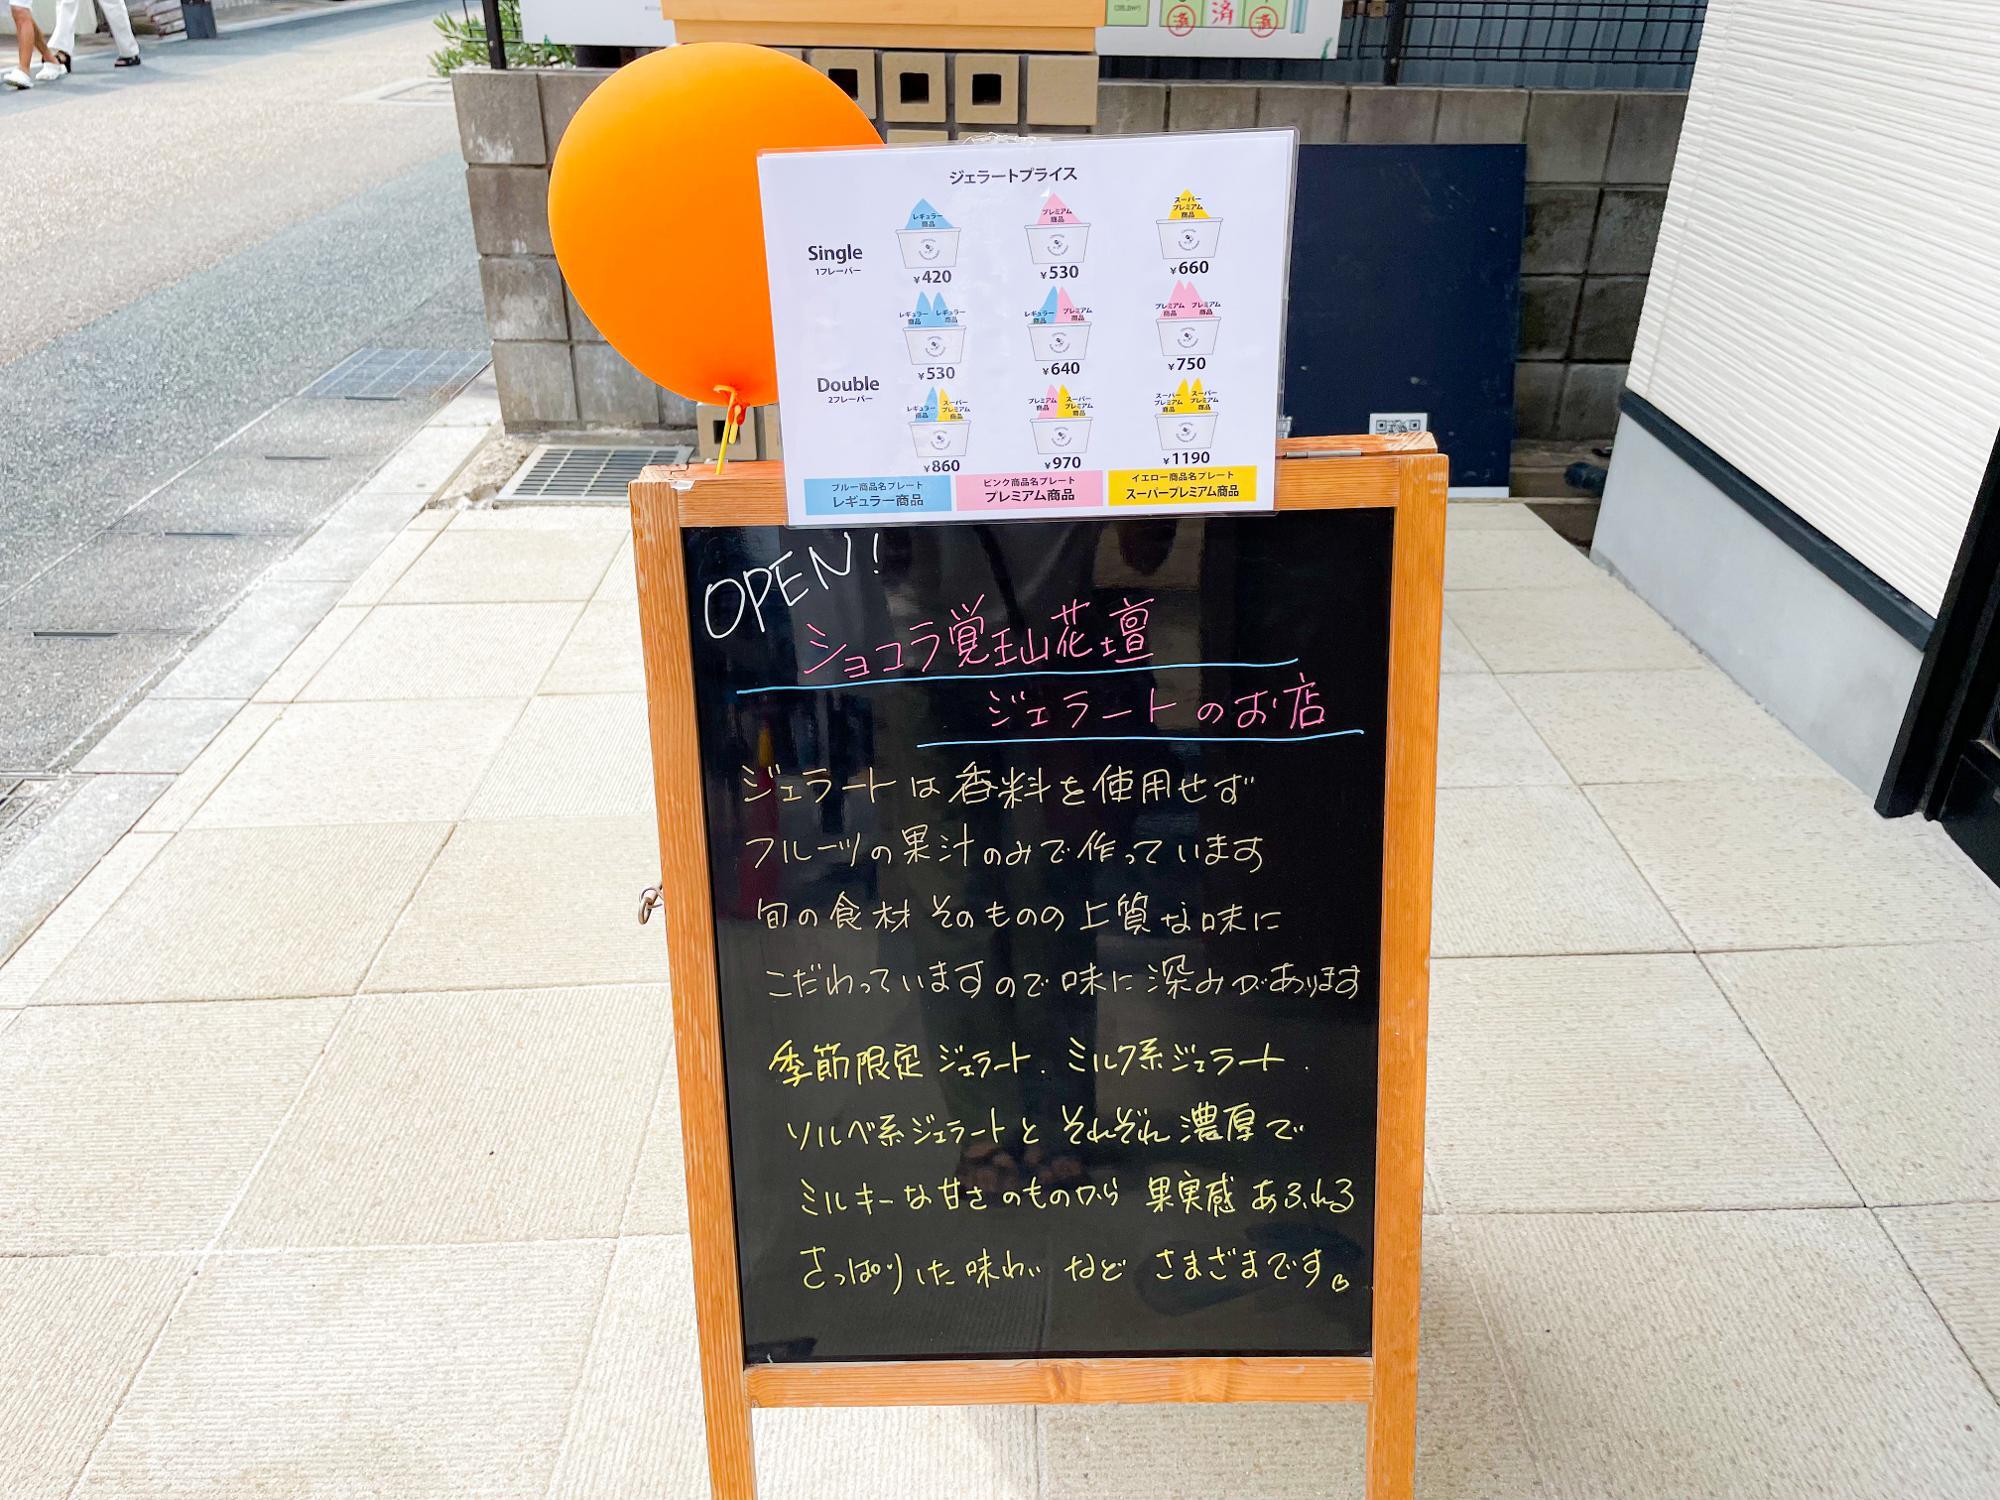 済
済
済
ジェラートプライス
Single
1フレーバー
レギュラー
商品
プレミアム
商品
スーパー
プレミアム
商品
¥420
¥530
¥660
レギュラー
商品
レギュラー
商品
レギュラー
商品
プレミアム
商品
プレミアム
商品
プレミアム
商品
¥530
¥640
¥750
Double
2フレーバー
レギュラー
商品
スーパー
プレミアム
商品
プレミアム
商品
スーパー
プレミアム
商品
スーパー
プレミアム
商品
スーパー
プレミアム
商品
¥860
¥970
¥1190
ブルー商品名プレート
レギュラー商品
ピンク商品名プレート
プレミアム商品
イエロー商品名プレート
スーパープレミアム商品
OPEN!
ショコラ覚王山花壇
ジェラートのお店
ジェラートは香料を使用せず
フルーツの果汁のみで作っています
旬の食材そのものの上質な味に
こだわっていますので味に深みがあります
季節限定ジェラート、ミルク系ジェラート、
ソルベ系ジェラートとそれぞれ濃厚で
ミルキーな甘さのものから果実感あふれる
さっぱりした味わいなどさまざまです。